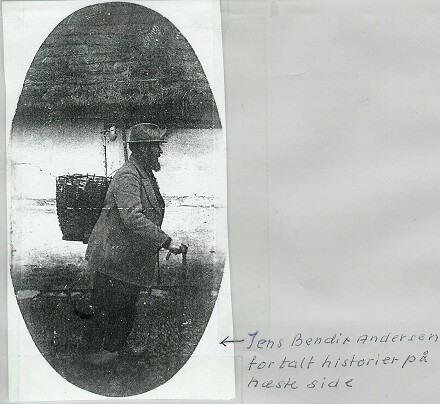 ← Jens Bendix Andersen
fortalt historier på
næste side